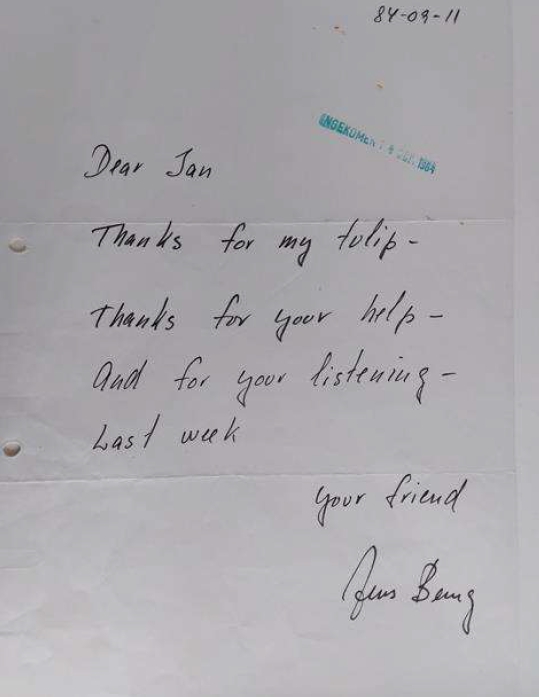 84-09-11
INGEKOMEN 1984
Dear Jan
Thanks for my tulip -
Thanks for your help -
And for your listening -
Last week
your friend
Jens Beng